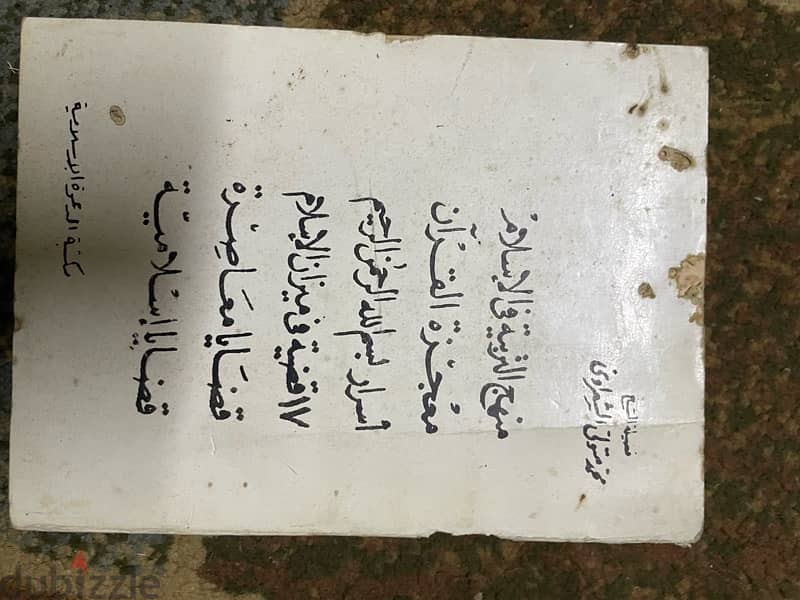 فضيلة الشيخ
محمد متولى الشعراوى
منهج التربية فى الإسلام
معجزة القرآن
أسرار بسم الله الرحمن الرحيم
١٧ قضية فى ميزان الإسلام
قضايا معاصرة
قضايا إسلامية
مكتبة الدعوة الإسلامية
dubizzle